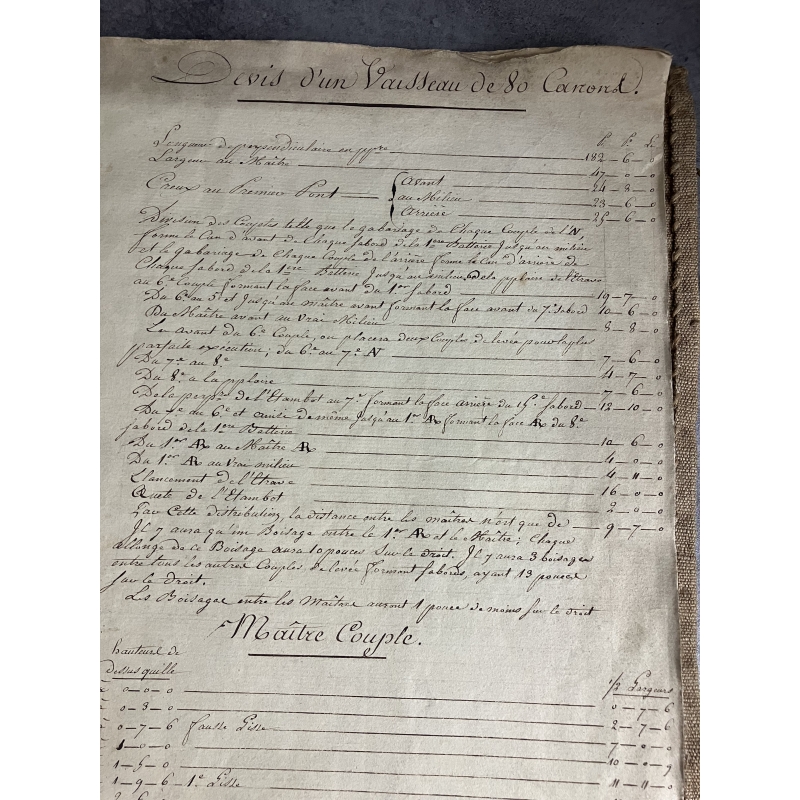 Devis d'un Vaisseau de 80 Canons.
P. P. L.
Longueur de perpendiculaire en ppre 182-6-0
Largeur au Maître 47-0-0
Creux au Premier Pont { Avant 24-8-0
au Milieu 23-6-0
Arrière 25-6-0
Division des Couples telle que le gabariage de Chaque Couple de l'N
forme le Can d'avant de Chaque Sabord de la 1ere Batterie Jusqu'au milieu
et le gabariage de Chaque Couple de l'arrière forme le Can d'arrière de
Chaque Sabord de la 1ere Batterie Jusqu'au milieu de la de l'Etrave
au 6e Couple formant la face avant du 1er Sabord 19-7-0
Du 6e au 5e et Jusqu'au maître avant formant la face avant du 7e Sabord 10-6-0
Du Maître avant au Vrai Milieu 8-8-0
En avant du 6e Couple, on placera deux Couples de levée pour la plus
parfaite exécution; du 6e au 7e N 7-6-0
Du 7e au 8e 4-7-0
Du 8e a la 7-6-0
De la perpre de l'Etambot au 7e formant la face arrière du 15e Sabord 12-10-0
Du 7e au 6e et ainsi de même Jusqu'au 1er AR formant la face AR du 8e
Sabord de la 1ere Batterie 10-6-0
Du 1er AR au Maître AR 4-0-0
Du 1er AR au vrai milieu 4-11-0
Elancement de l'Etrave 16-0-0
Quete de l'Etambot 2-0-0
Par Cette distribution, la distance entre les maîtres n'est que de 9-7-0
Il y aura qu'un Boisage entre le 1er AR et le Maître; Chaque
allonge de ce Boisage aura 10 pouces Sur le droit. Il y aura 3 boisages
entre tous les autres Couples de levée formant Sabords, ayant 13 pouces
Sur le droit.
Les Boisage entre les Maître auront 1 pouce de moins Sur le droit
Maître Couple.
hauteurs de
dessus quille 1/2 Largeurs
0-0-0 0-7-6
0-3-0 2-7-6
0-7-6 fausse Lisse 7-0-0
1-0-0 10-0-9
1-5-0 11-11-0
1-9-6 1e Lisse